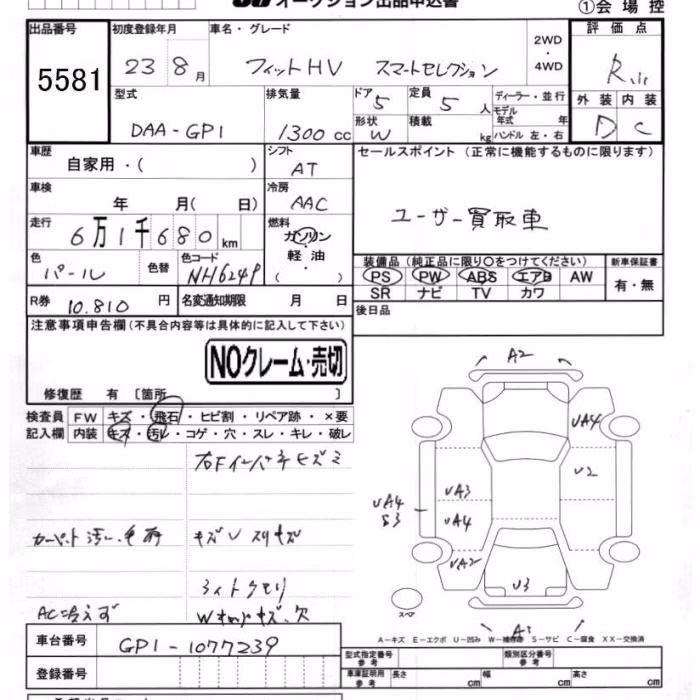 オークション出品申込書
①会場控
出品番号 初度登録年月 車名・グレード 2WD・4WD 評価点
5581 23 8月 フィットHV スマートセレクション R
型式 排気量 ドア 5 定員 5人 ディーラー・並行 外装 内装
DAA-GP1 1300cc 形状 W 積載 kg モデル年式 年 ハンドル 左・右 D C
車歴 自家用・( ) シフト AT セールスポイント (正常に機能するものに限ります)
車検 年 月( 日) 冷房 AAC ユーザー買取車
走行 6万1千680km 燃料 ガソリン・軽油・( )
色 パール 色替 色コード NH624P
装備品 (純正品に限り○をつけてください) 新車保証書
PS PW ABS エアB AW 有・無
SR ナビ TV カワ
R券 10.810円 名変通知期限 月 日 後日品
注意事項申告欄(不具合内容等は具体的に記入して下さい)
NOクレーム・売切
修復歴 有 〔箇所 〕
検査員記入欄 FW キズ・飛石・ヒビ割・リペア跡・×要
内装 キズ・汚レ・コゲ・穴・スレ・キレ・破レ
カーペット汚レ キズU スリキズ
ライトクモリ
AC冷えず
A2
UA4
U2
UA3
UA4 S3
UA4
UA2
U3
スペア
A-キズ E-エクボ U-凹み W-補修跡 S-サビ C-腐食 XX-交換済
車台番号 GP1-1077239 型式指定番号 参考 類別区分番号 参考
登録番号 車庫証明用 参考 長さ cm 幅 cm 高さ cm